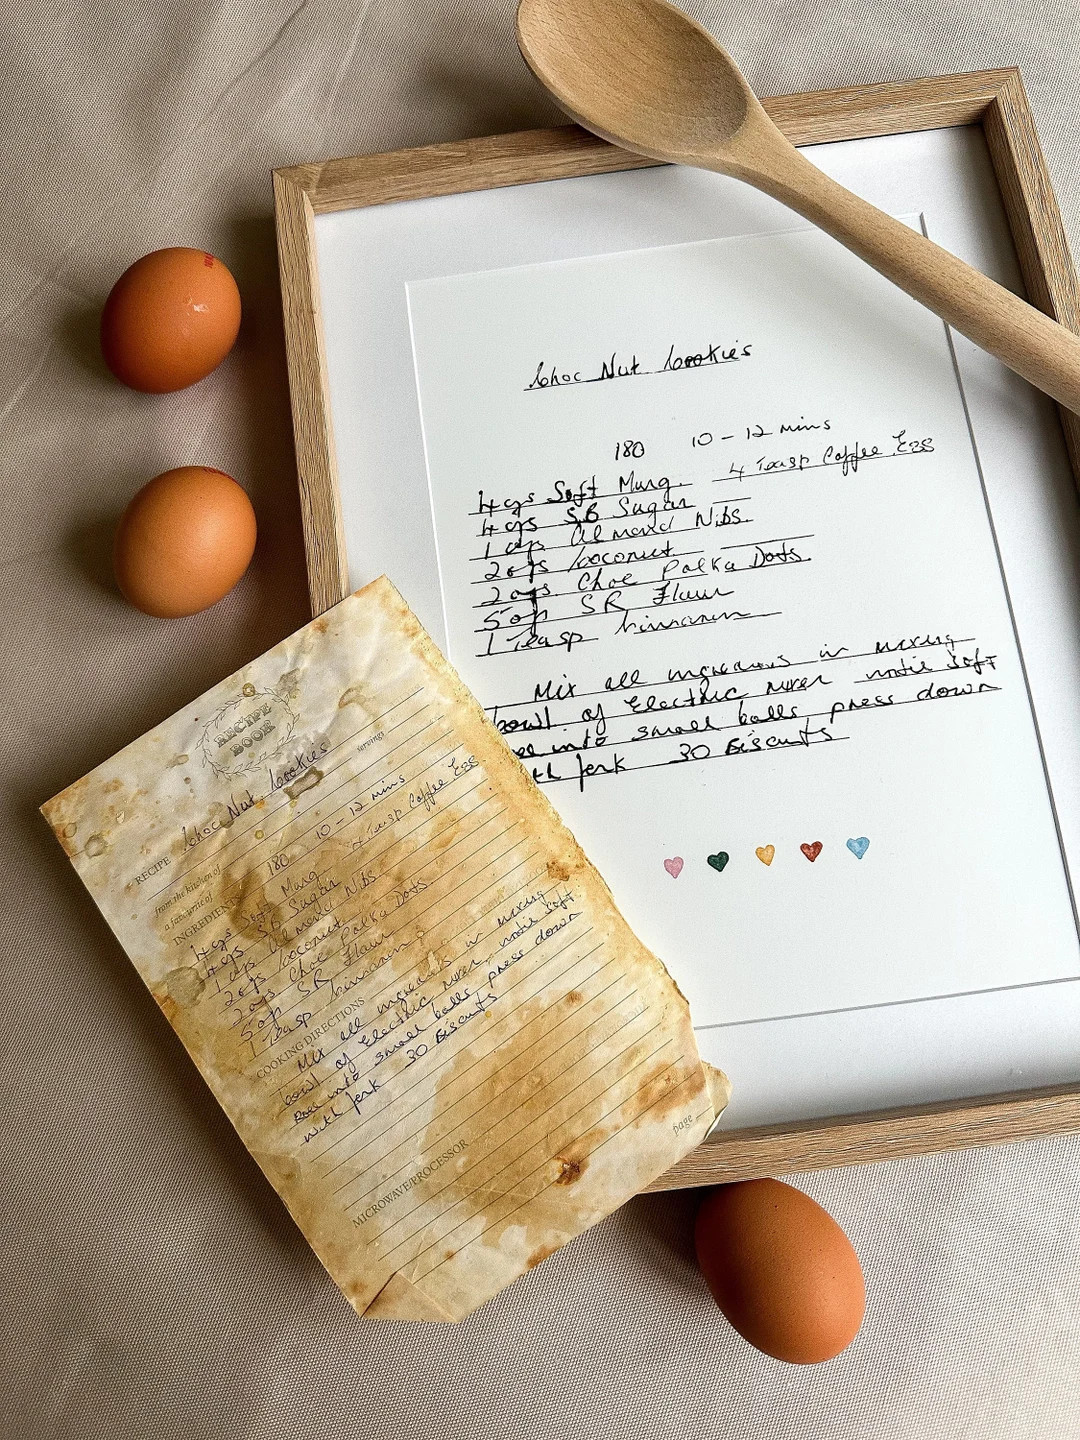 Choc Nut Cookies
180 10 - 12 mins
4 Teasp Coffee Ess
4 ozs Soft Marg.
4 ozs SB Sugar
1 Almond Nibs
2 ozs Coconut
2 ozs Choc Polka Dots
5 SR Flour
1 Teasp Cinnamon
Mix all in mixing
bowl of Electric mixer until soft
into small balls, press down
th fork 30 Biscuits
RECIPE
BOOK
servings
RECIPE Choc Nut Cookies
from the kitchen of
a favourite of
180 10 - 12 mins
4 Teasp Coffee Ess
INGREDIENTS
4 ozs Soft Marg
4 ozs SB Sugar
1 Almond Nibs
2 ozs Coconut
2 ozs Choc Polka Dots
5 SR Flour
1 Teasp Cinnamon
COOKING DIRECTIONS
Mix all in mixing
bowl of Electric mixer, until soft
into small balls press down
with fork 30 Biscuits
MICROWAVE/PROCESSOR
page